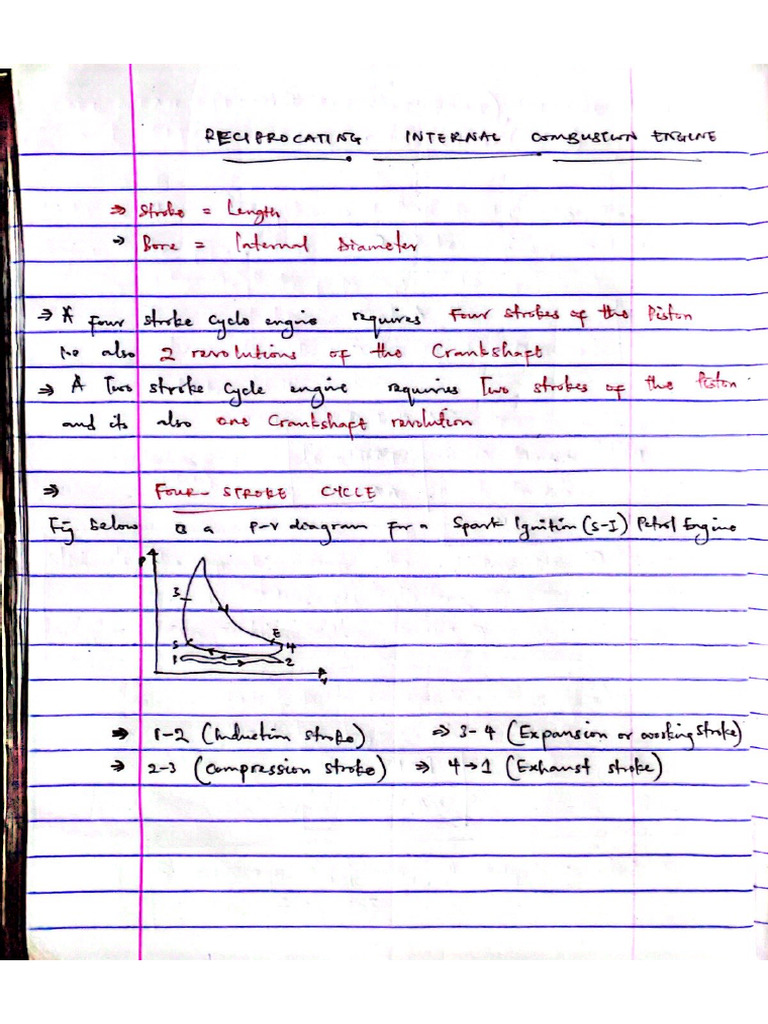 RECIPROCATING INTERNAL COMBUSTION ENGINE
⇒ Stroke = Length
→ Bore = Internal Diameter
⇒ A Four stroke cycle engine requires Four strokes of the Piston
also 2 revolutions of the Crankshaft
⇒ A Two stroke cycle engine requires Two strokes of the Piston
and its also one Crankshaft revolution
⇒ FOUR-STROKE CYCLE
Fig below is a P-V diagram for a Spark Ignition (S-I) Petrol Engine
P
3
E
S 4
1 2
V
⇒ 1-2 (Induction stroke) ⇒ 3-4 (Expansion or working stroke)
⇒ 2-3 (Compression stroke) ⇒ 4→1 (Exhaust stroke)